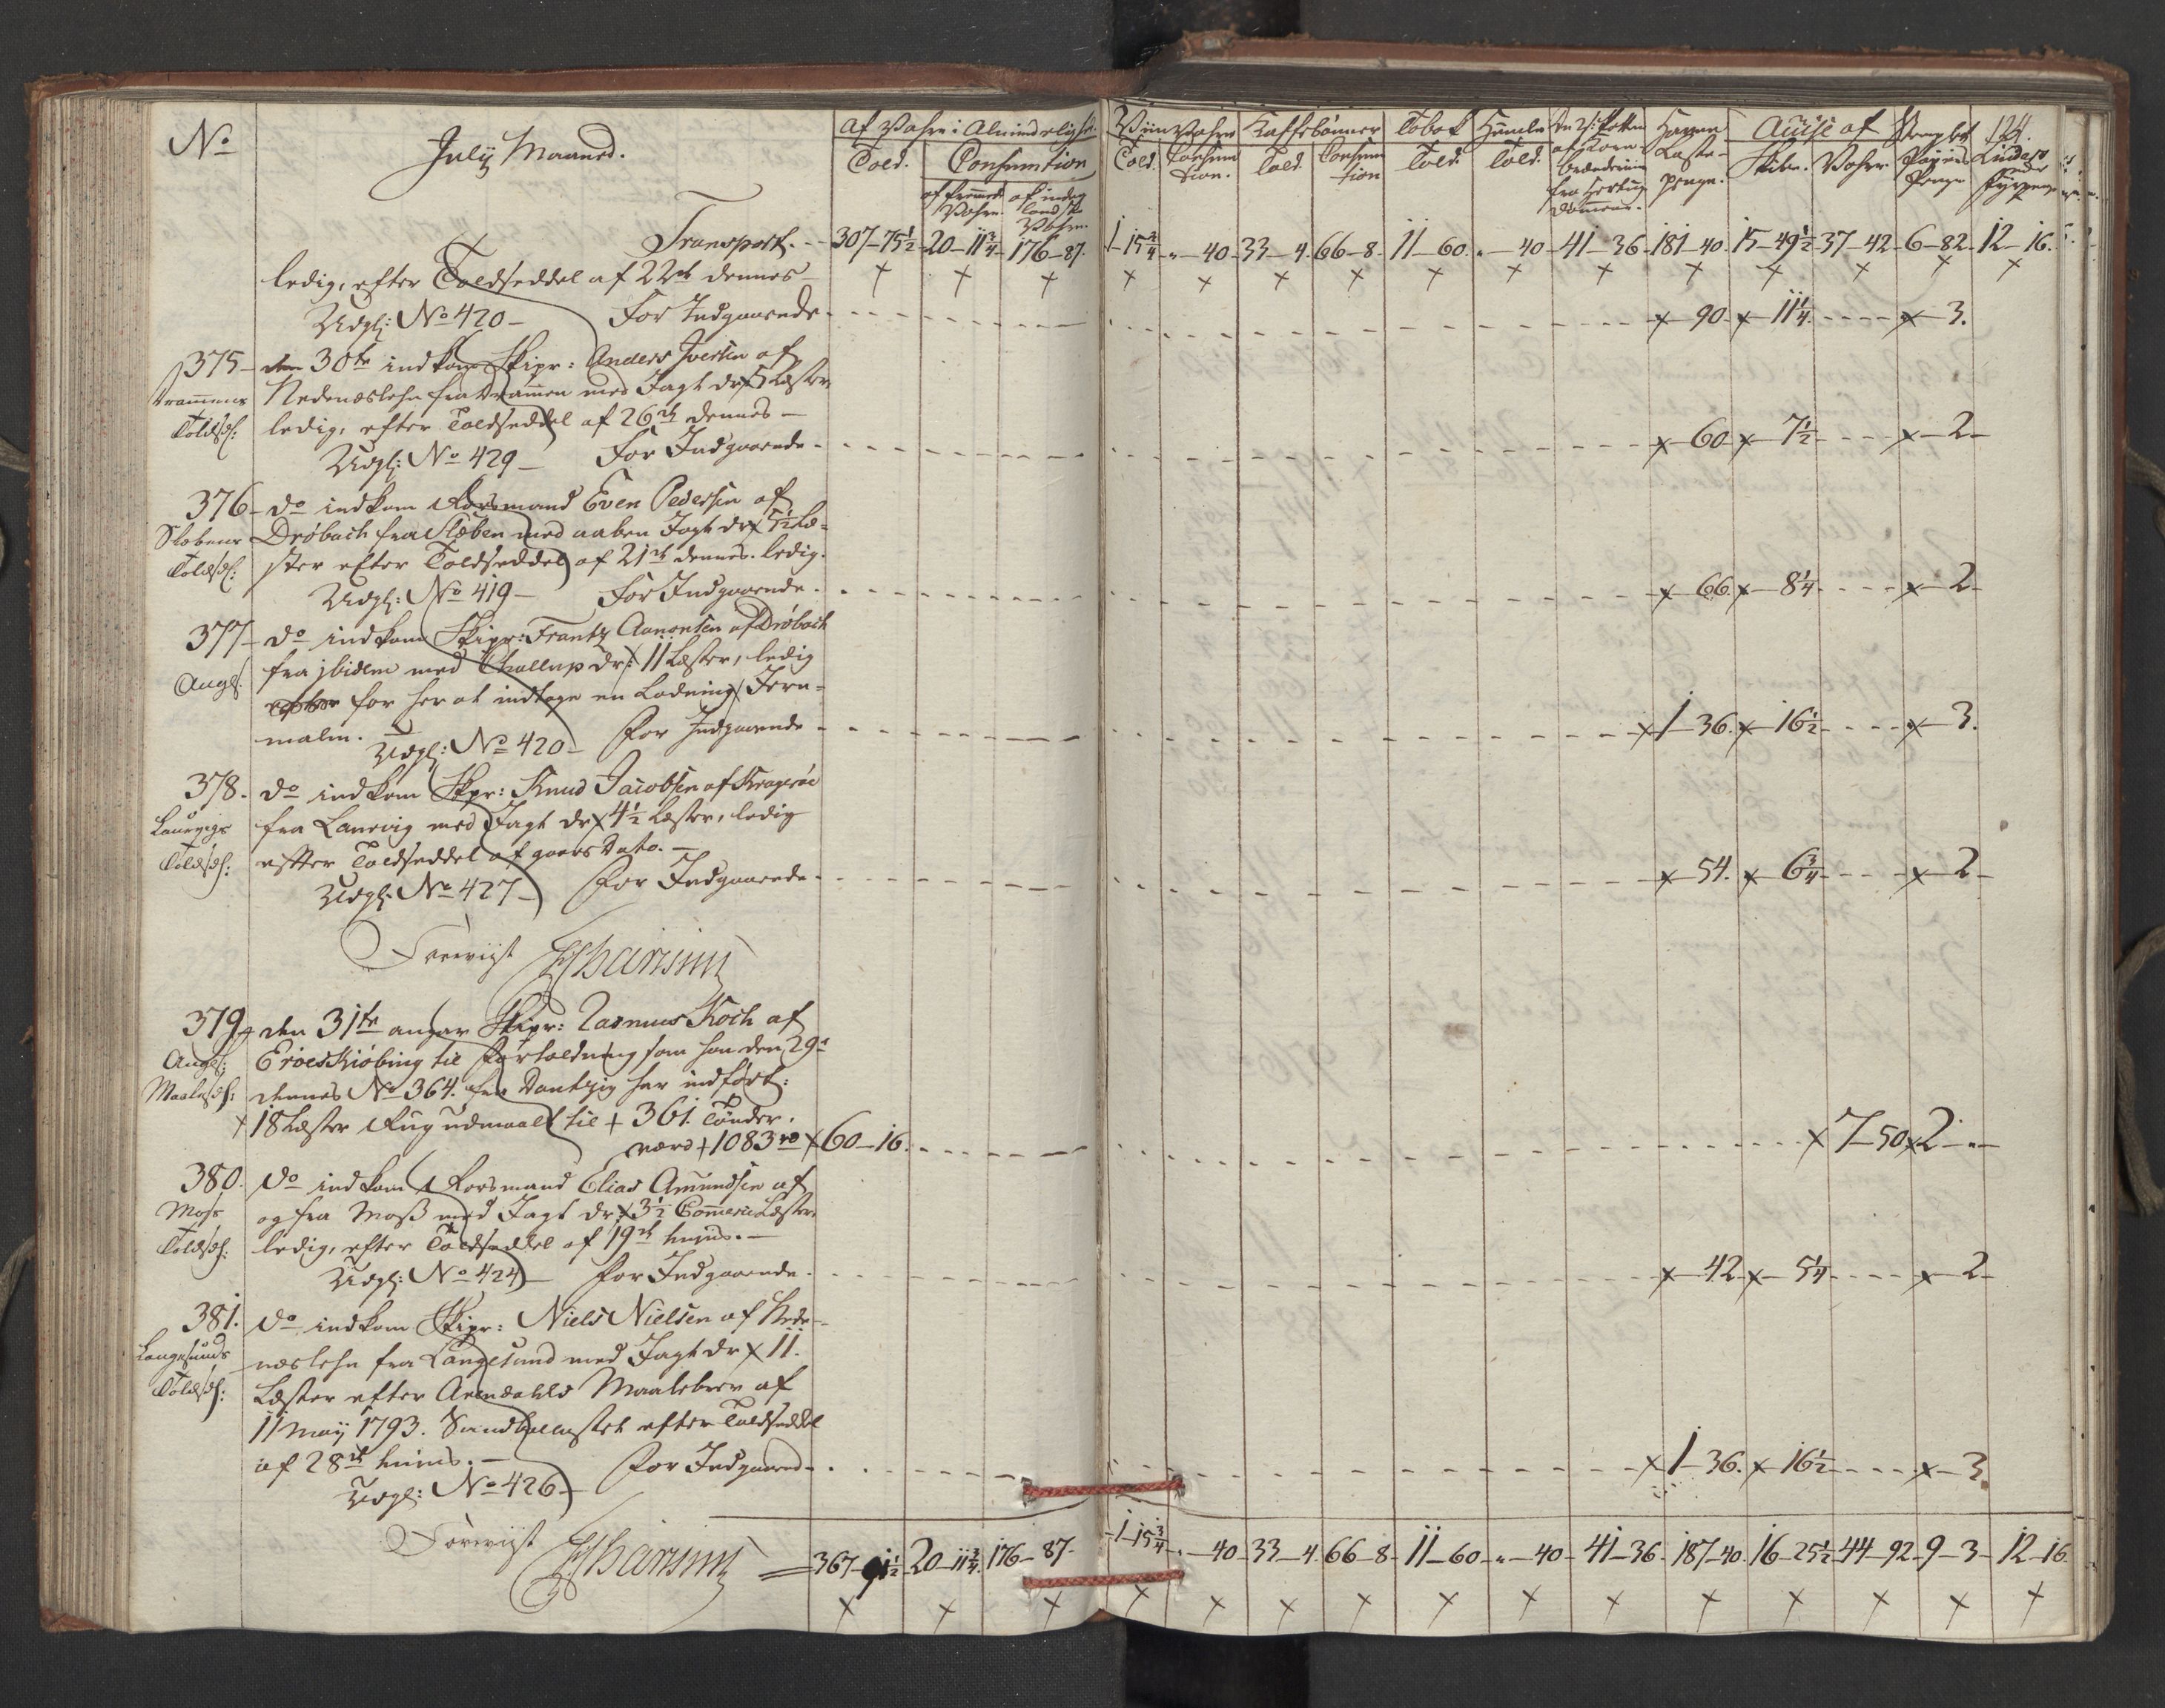 No
July Maaned.
Af Vahre i Almindelighed.
Told. Consumtion
af fremmede Vahre. af indenlandske Vahre.
Viin Vahre Kaffebønner Tobak Humle
Told. Consumtion. Told Consumtion Told. Told.
Havne Laste-penge.
Accise af Stemplet 124.
Skibe. Vahre Papiirs Penge
Transport. 307-75½ 20-11¾ 176-87. 1-15¾ "-40 33-4. 66-8. 11-60. "-40 41-36 181-40. 15-49½ 37-42 6-82 12-16.
ledig, efter Toldseddel af 22de dennes
Udgl: No 420 For Indgaaende 90 11¼ 3.
375 den 30te indkom Skipr: Anders Iversen af
Drammens Nedenæslehn fra Drammen med Jagt dr: 5 Læster
Toldsedl: ledig, efter Toldseddel af 26de dennes
Udgl: No 429 For Indgaaende 60 7½ 2
376 do indkom Forsmand Even Pedersen af
Slæbens Drøbach fra Slæben med aaben Jagt dr: 5½ Læ-
Toldsedl: ster efter Toldseddel af 21de dennes. ledig.
Udgl: No 419 For Indgaaende 66 8¼ 2
377 do indkom Skipr: Frantz Aanonsen af Drøbach
Angl: fra ibidem med Challup dr: 11 Læster, ledig
for her at indtage en Ladning Jern-
malm.
Udgl: No 420 For Indgaaende 1-36. 16½ 3.
378. do indkom Skpr: Knud Jacobsen af Kragerøe
Laurvigs fra Laurvig med Jagt dr: 4½ Læster, ledig
Toldsedl: efter Toldseddel af gaars Dato.
Udgl: No 427 For Indgaaende 54. 6¾ 2
379 den 31te angav Skipr: Rasmus Koch af
Angl: Eroeskiøbing til Fortoldning som han den 29de
Maalsedl: dennes No 364. fra Dantzig har indført:
18 Læster Rug udmaalt til 361. Tønder.
værd 1083 rd 60-16. 7-50 2-"
380. do indkom Forsmand Elias Amundsen af
Moss og fra Moss med Jagt dr: 3½ CommerceLæster
Toldsedl: ledig, efter Toldseddel af 19de hujus.
Udgl: No 424 For Indgaaende 42 5¼ 2
381. do indkom Skipr: Niels Nielsen af Nede-
Langesunds næslehn fra Langesund med Jagt dr 11.
Toldsedl: Læster efter Arendahls Maalebrev af
11 May 1793. Sandballastet efter Toldseddel
af 28de hujus.
Udgl: No 426 For Indgaaende 1-36. 16½ 3.
367-91½ 20-11¾ 176-87. 1-15¾ "-40 33-4. 66-8. 11-60 "-40 41-36 187-40. 16-25½ 44-92 9-3 12-16